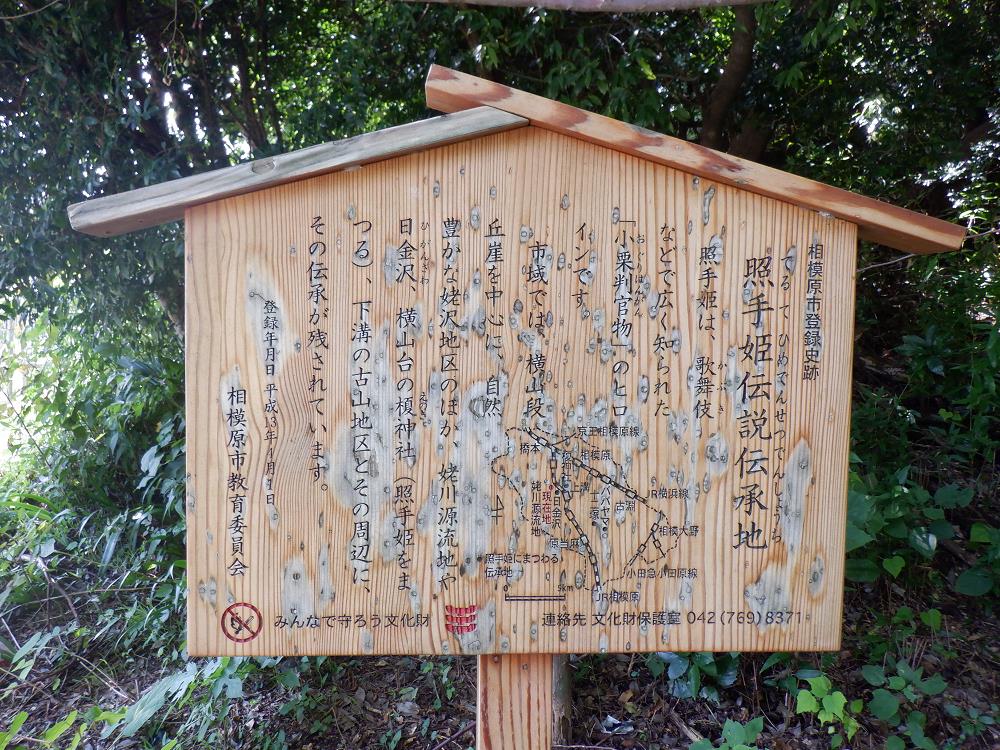 相模原市登録史跡
てるてひめでんせつでんしょうち
照手姫伝説伝承地
照手姫は、歌舞伎
かぶき
などで広く知られた
おぐりはんがん
「小栗判官物」のヒロ
インです。
市域では、横山段
丘崖を中心に、自然
豊かな姥沢地区のほか、姥川源流地や
ひがんざわ
えのき
日金沢、横山台の榎神社（照手姫をま
つる）、下溝の古山地区とその周辺に、
その伝承が残されています。
登録年月日 平成13年4月1日
相模原市教育委員会
京王相模原線
橋本
相模原
JR横浜線
上溝
古淵
現在地
日金沢
姥川源流地
相模大野
原当麻
小田急小田原線
照手姫にまつわる
伝承地
5km
JR相模原
みんなで守ろう文化財
連絡先 文化財保護室 042(769)8371